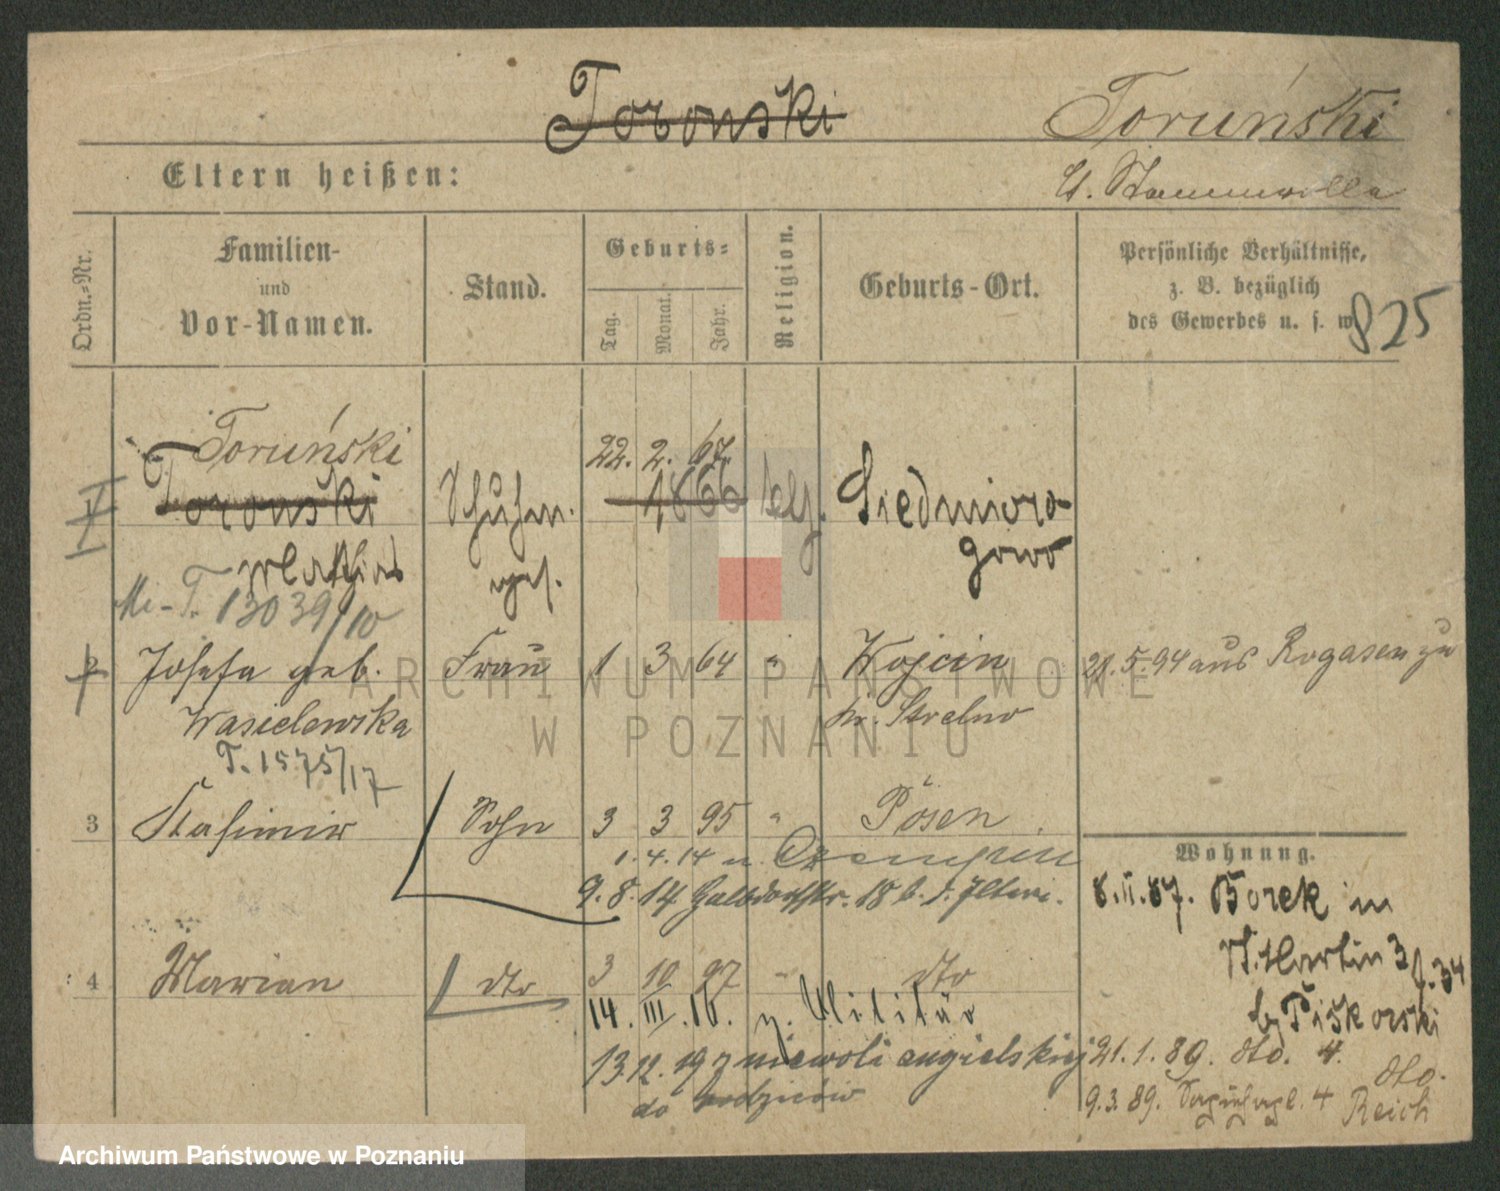 Toronski
Toruński
Eltern heißen:
Ordn.-Nr.
Familien-
und
Vor-Namen.
Stand.
Geburts-
Tag.
Monat.
Jahr.
Religion.
Geburts-Ort.
Persönliche Verhältnisse,
z. B. bezüglich
des Gewerbes u. s. w.
825
Toruński
22. 2. 67.
Toronski
Schuhm.
1866
Siedmioro-
gowo
Mathias
ges.
T. 13039/10
2
Josefa geb.
Frau
1 3 64 "
Wojcin
21.5.94 aus Rogasen zu
Wasielewska
Kr. Strelno
T. 1575/17
3
Kasimir
Sohn
3 3 95 "
Posen
1.4.14 n. Czempin
9.8.14
18 b. d. Eltern.
Wohnung.
8.II.87. Borek in
St. Martin 34
b. Piskorski
4
Marian
dto
3 10 97 "
dto
14.III.16. z. Militär
13.12.19 z niewoli angielskiej
do rodziców
21.1.89. dto. 4.
dto.
9.3.89. 4 Reich
ARCHIWUM PAŃSTWOWE
W POZNANIU
Archiwum Państwowe w Poznaniu